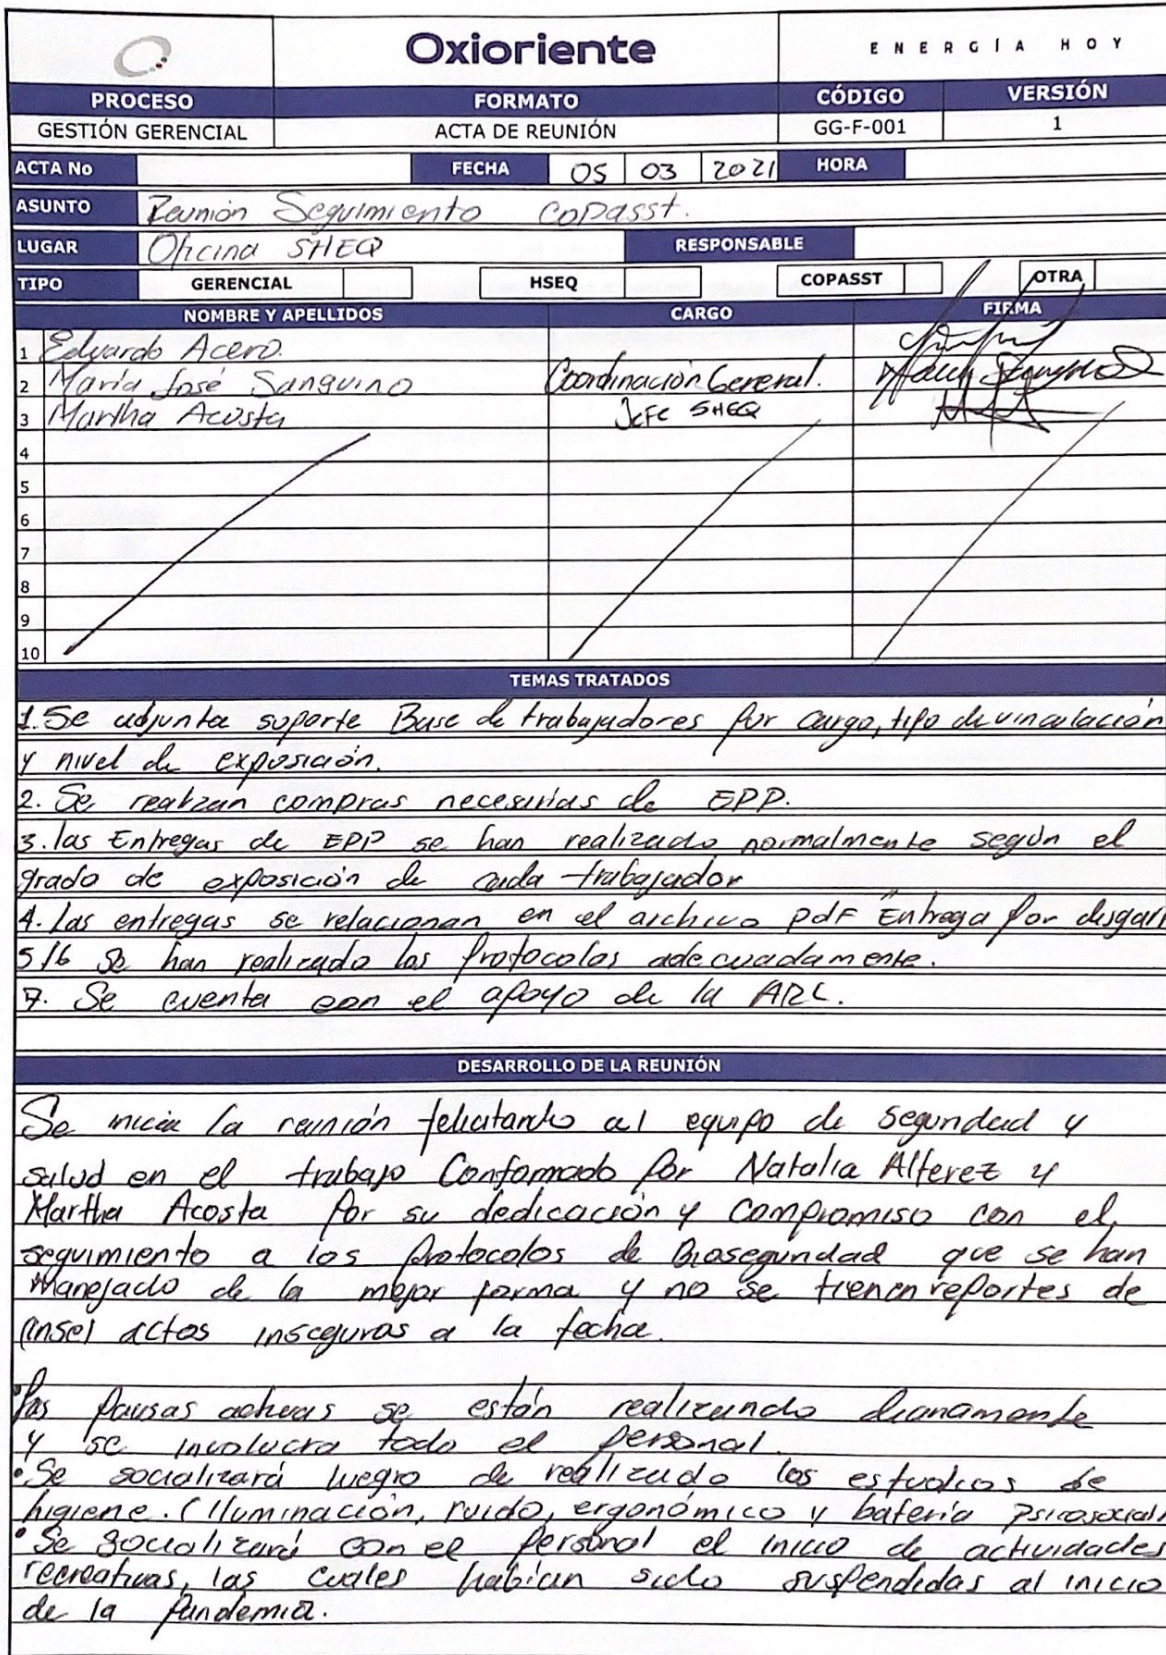 Oxioriente
ENERGÍA HOY
PROCESO FORMATO CÓDIGO VERSIÓN
GESTIÓN GERENCIAL ACTA DE REUNIÓN GG-F-001 1
ACTA No FECHA 05 03 2021 HORA
ASUNTO Reunión Seguimiento COPASST.
LUGAR Oficina SHEQ RESPONSABLE
TIPO GERENCIAL HSEQ COPASST OTRA
NOMBRE Y APELLIDOS CARGO FIRMA
1 Eduardo Acero.
2 María José Sanguino Coordinación General.
3 Martha Acosta Jefe SHEQ
4
5
6
7
8
9
10
TEMAS TRATADOS
1. Se adjunta soporte Base de trabajadores por cargo, tipo de vinculación
y nivel de exposición.
2. Se realizan compras necesarias de EPP.
3. las Entregas de EPP se han realizado normalmente según el
grado de exposición de cada trabajador
4. Las entregas se relacionan en el archivo pdf Entrega por
5/6 Se han realizado los protocolos adecuadamente.
7. Se cuenta con el apoyo de la ARL.
DESARROLLO DE LA REUNIÓN
Se inicia la reunión felicitando al equipo de seguridad y
salud en el trabajo Conformado por Natalia Alferez y
Martha Acosta por su dedicación y compromiso con el
seguimiento a los protocolos de Bioseguridad que se han
manejado de la mejor forma y no se tienen reportes de
actos inseguros a la fecha.
las pausas activas se están realizando diariamente
y se involucra todo el personal.
• Se socializará luego de realizado los estudios de
higiene. (Iluminación, ruido, ergonómico y batería psicosocial
• Se socializará con el personal el inicio de actividades
recreativas, las cuales habían sido suspendidas al inicio
de la pandemia.